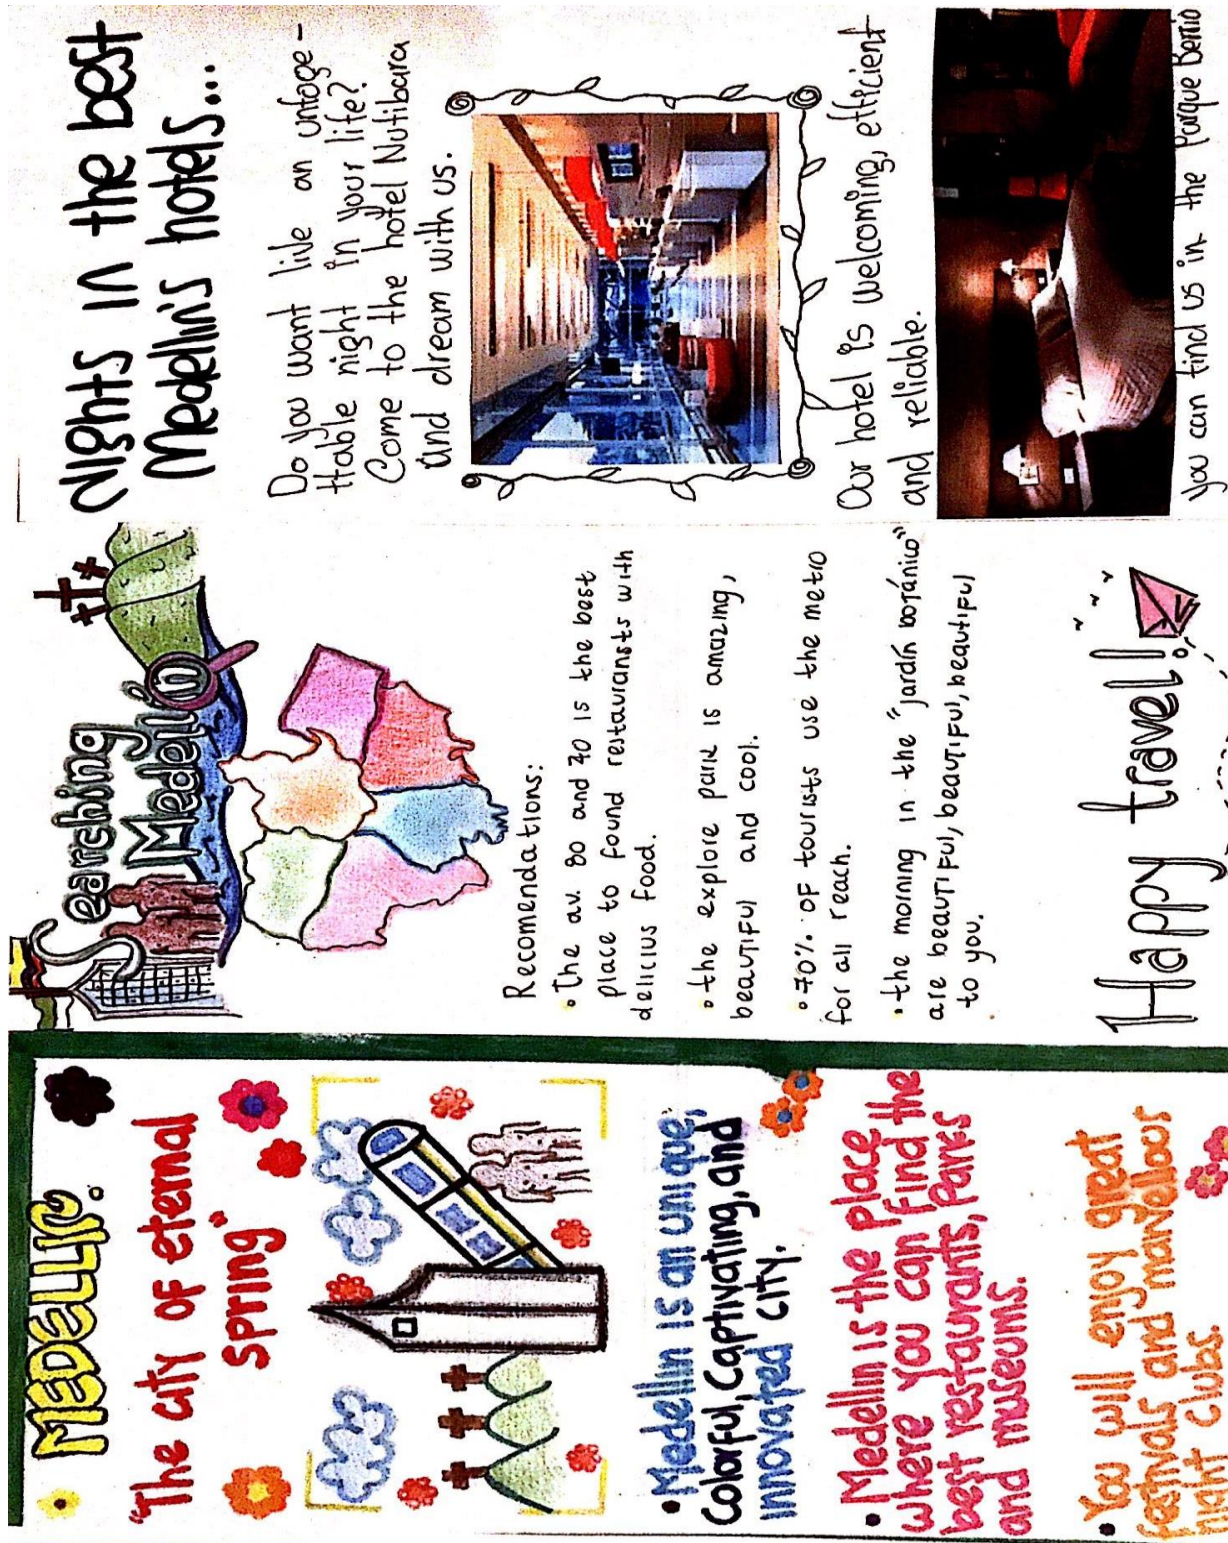 MEDELLIN.
"The city of eternal
spring"
• Medellin is an unique,
Colorful, Captivating, and
innovated city.
• Medellin is the place
where you can find the
best restaurants, Parks
and museums.
• You will enjoy great
festivals and marvellous
night clubs.
Searching
Medellín
Recomendations:
• The av. 80 and 70 is the best
place to found restauransts with
delicius food.
• the explore park is amazing,
beautiful and cool.
• 70% of tourists use the metro
for all reach.
• the morning in the "jardín botánico"
are beautiful, beautiful, beautiful
to you.
Happy travel!
Nights in the best
Medellin's hotels...
Do you want live an unfoge-
ttable night in your life?
Come to the hotel Nutibara
and dream with us.
Our hotel is welcoming, efficient
and reliable.
you can find us in the Parque Berrio